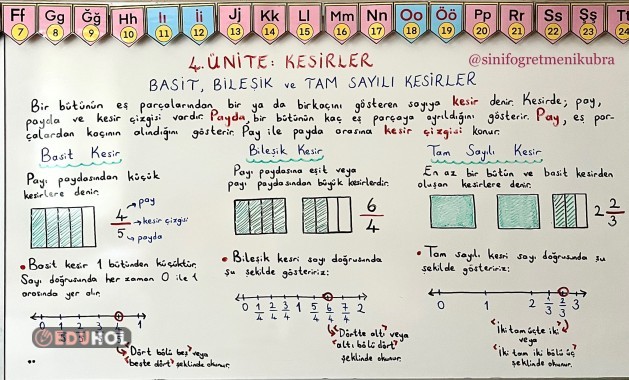 Ff Gg Ğğ Hh Iı İi Jj Kk Ll Mm Nn Oo Öö Pp Rr Ss Şş Tt
7 8 9 10 11 12 13 14 15 16 17 18 19 20 21 22 23 24
@sinifogretmenikubra
4. ÜNİTE: KESİRLER
BASİT, BİLEŞİK ve TAM SAYILI KESİRLER
Bir bütünün eş parçalarından bir ya da birkaçını gösteren sayıya kesir denir. Kesirde; pay,
payda ve kesir çizgisi vardır. Payda, bir bütünün kaç eş parçaya ayrıldığını gösterir. Pay, eş par-
çalardan kaçının alındığını gösterir. Pay ile payda arasına kesir çizgisi konur.
Basit Kesir
Payı paydasından küçük
kesirlere denir.
4/5
pay
kesir çizgisi
payda
• Basit kesir 1 bütünden küçüktür.
Sayı doğrusunda her zaman 0 ile 1
arasında yer alır.
1
EDUHOL
"Dört bölü beş" veya
"beşte dört" şeklinde okunur.
Bileşik Kesir
Payı paydasına eşit veya
payı paydasından büyük kesirlerdir.
6/4
• Bileşik kesri sayı doğrusunda
şu şekilde gösteririz:
0 1/4 2/4 3/4 1 5/4 6/4 7/4 2
"Dörtte altı" veya
"altı bölü dört"
şeklinde okunur.
Tam Sayılı Kesir
En az bir bütün ve basit kesirden
oluşan kesirlere denir.
2 2/3
• Tam sayılı kesri sayı doğrusunda
şu şekilde gösteririz:
0 1 2 1/3 2/3 3
"İki tam üçte iki"
veya
"İki tam iki bölü üç"
şeklinde okunur.